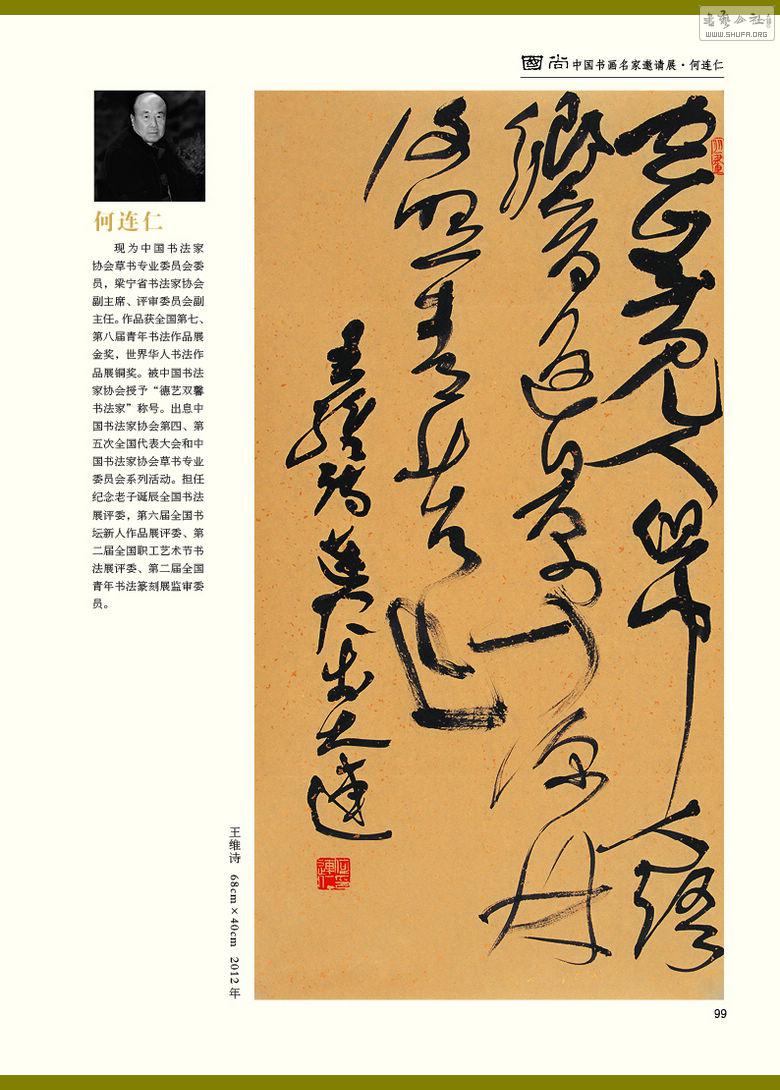 书艺公社
WWW.SHUFA.ORG
國尚中国书画名家邀请展·何连仁
何连仁
现为中国书法家
协会草书专业委员会委
员，梁宁省书法家协会
副主席、评审委员会副
主任。作品获全国第七、
第八届青年书法作品展
金奖，世界华人书法作
品展铜奖。被中国书法
家协会授予“德艺双馨
书法家”称号。出息中
国书法家协会第四、第
五次全国代表大会和中
国书法家协会草书专业
委员会系列活动。担任
纪念老子诞辰全国书法
展评委，第六届全国书
坛新人作品展评委、第
二届全国职工艺术节书
法展评委、第二届全国
青年书法篆刻展监审委
员。
空山不見人但聞人語
響返景入深林
復照青苔上
王維詩連仁書大連
王维诗 68cm×40cm 2012年
99